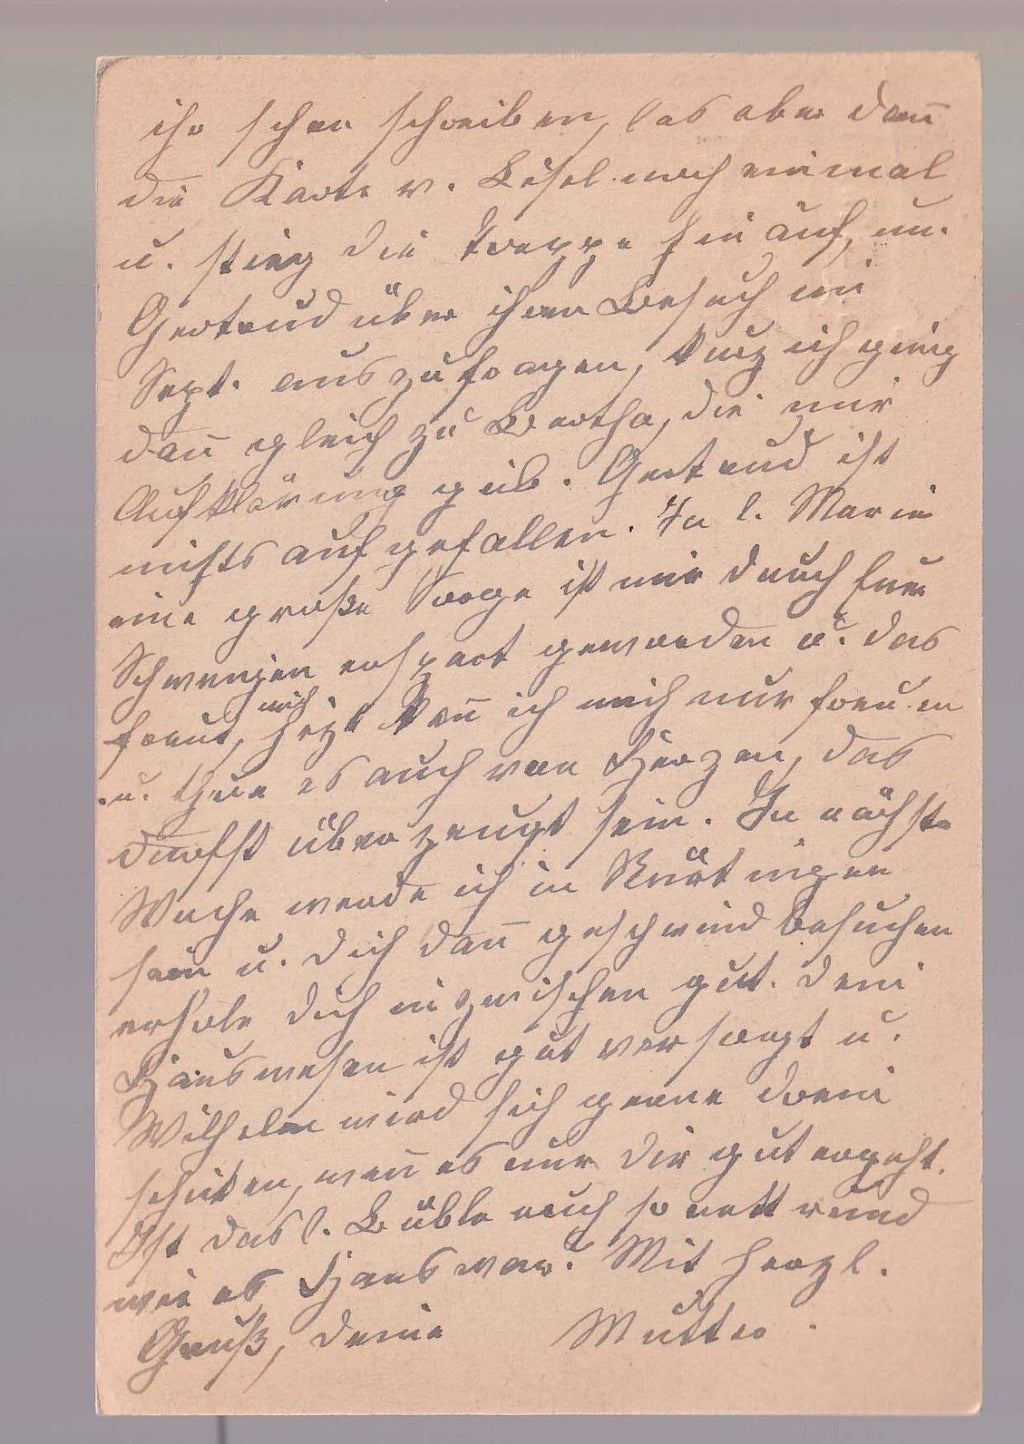 ihr schon schreiben, las aber dan̄
die Karte v. Lisel noch einmal
u. stieg die Treppe hinauf, um
Gertrud über ihren Besuch im
Sept. auszufragen, kurz ich ging
dan̄ gleich zu Bertha, die mir
Aufklärung gab. Gertrud ist
nichts aufgefallen. Ja l. Marie
eine große Sorge ist mir durch Euer
Schweigen erspart geworden u. das
freut mich, jetzt kan̄ ich mich nur freuen
u. thue es auch von Herzen, das
darfst überzeugt sein. In nächster
Woche werde ich in Nürtingen
sein u. Dich dan̄ geschwind besuchen
erhole Dich inzwischen gut. Dein
Hauswesen ist gut versorgt u.
Wilhelm wird sich gerne drein
schicken, wen̄ es nur Dir gut ergeht.
Ist das l. Büble auch so nett rund
wie es Hans war? Mit herzl.
Gruß, Deine Mutter.